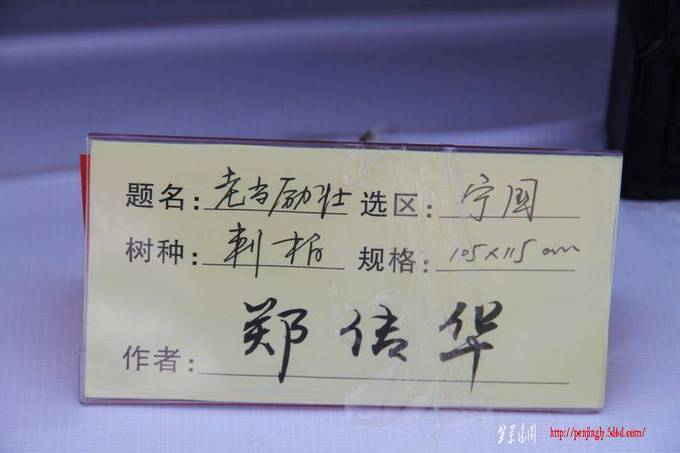 题名：老当励壮 选区：宁国
树种：刺柏 规格：105×115 cm
作者：郑 华
http://penjingly.5d6d.com/